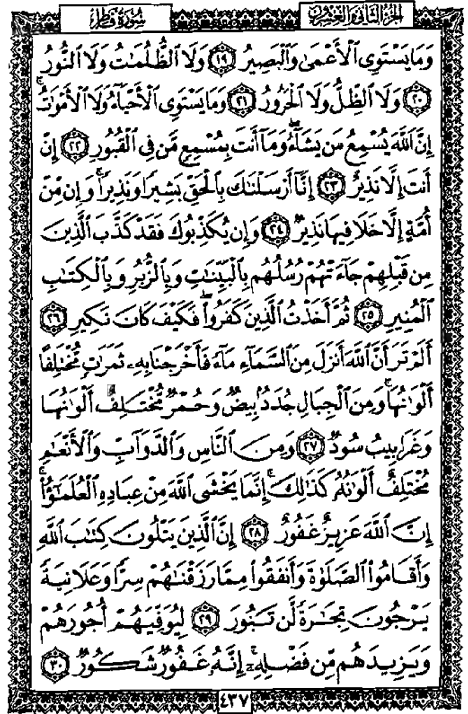 الجزء الثاني والعشرون
سورة فاطر
وَمَا يَسْتَوِي الْأَعْمَىٰ وَالْبَصِيرُ ﴿١٩﴾ وَلَا الظُّلُمَاتُ وَلَا النُّورُ
﴿٢٠﴾ وَلَا الظِّلُّ وَلَا الْحَرُورُ ﴿٢١﴾ وَمَا يَسْتَوِي الْأَحْيَاءُ وَلَا الْأَمْوَاتُ ۚ
إِنَّ اللَّهَ يُسْمِعُ مَن يَشَاءُ ۖ وَمَا أَنتَ بِمُسْمِعٍ مَّن فِي الْقُبُورِ ﴿٢٢﴾ إِنْ
أَنتَ إِلَّا نَذِيرٌ ﴿٢٣﴾ إِنَّا أَرْسَلْنَاكَ بِالْحَقِّ بَشِيرًا وَنَذِيرًا ۚ وَإِن مِّنْ
أُمَّةٍ إِلَّا خَلَا فِيهَا نَذِيرٌ ﴿٢٤﴾ وَإِن يُكَذِّبُوكَ فَقَدْ كَذَّبَ الَّذِينَ
مِن قَبْلِهِمْ جَاءَتْهُمْ رُسُلُهُم بِالْبَيِّنَاتِ وَبِالزُّبُرِ وَبِالْكِتَابِ
الْمُنِيرِ ﴿٢٥﴾ ثُمَّ أَخَذْتُ الَّذِينَ كَفَرُوا ۖ فَكَيْفَ كَانَ نَكِيرِ ﴿٢٦﴾
أَلَمْ تَرَ أَنَّ اللَّهَ أَنزَلَ مِنَ السَّمَاءِ مَاءً فَأَخْرَجْنَا بِهِ ثَمَرَاتٍ مُّخْتَلِفًا
أَلْوَانُهَا ۚ وَمِنَ الْجِبَالِ جُدَدٌ بِيضٌ وَحُمْرٌ مُّخْتَلِفٌ أَلْوَانُهَا
وَغَرَابِيبُ سُودٌ ﴿٢٧﴾ وَمِنَ النَّاسِ وَالدَّوَابِّ وَالْأَنْعَامِ
مُخْتَلِفٌ أَلْوَانُهُ كَذَٰلِكَ ۗ إِنَّمَا يَخْشَى اللَّهَ مِنْ عِبَادِهِ الْعُلَمَاءُ ۗ
إِنَّ اللَّهَ عَزِيزٌ غَفُورٌ ﴿٢٨﴾ إِنَّ الَّذِينَ يَتْلُونَ كِتَابَ اللَّهِ
وَأَقَامُوا الصَّلَاةَ وَأَنفَقُوا مِمَّا رَزَقْنَاهُمْ سِرًّا وَعَلَانِيَةً
يَرْجُونَ تِجَارَةً لَّن تَبُورَ ﴿٢٩﴾ لِيُوَفِّيَهُمْ أُجُورَهُمْ
وَيَزِيدَهُم مِّن فَضْلِهِ ۚ إِنَّهُ غَفُورٌ شَكُورٌ ﴿٣٠﴾
٤٣٧